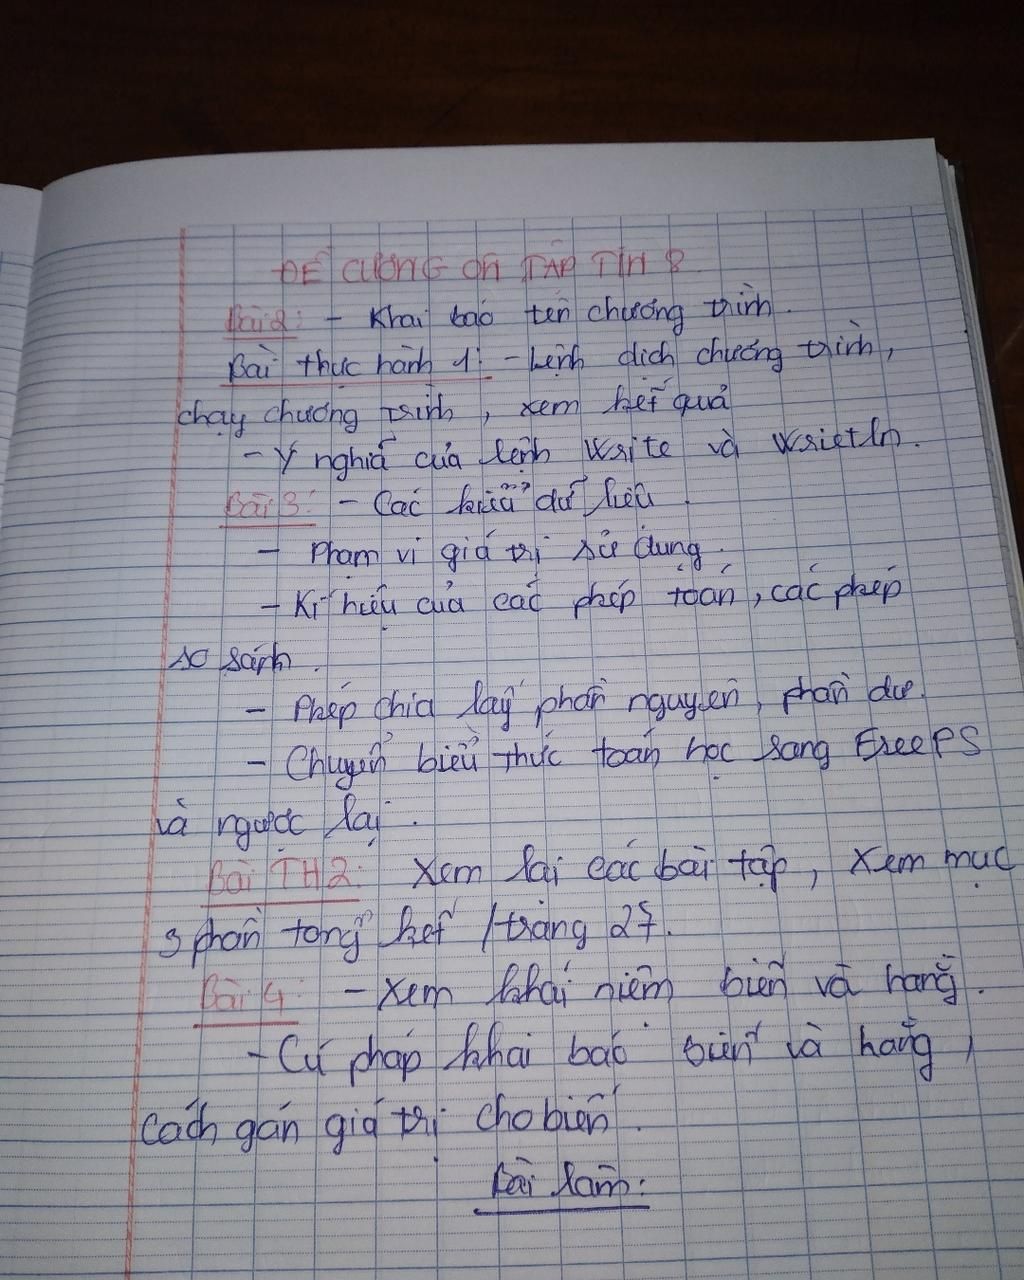 ĐỀ CƯƠNG ÔN TẬP TIN 8
Bài 2: - Khai báo tên chương trình.
Bài thực hành 1: - Lệnh dịch chương trình,
chạy chương trình, xem kết quả
- Ý nghĩa của lệnh Write và Wrietln.
Bài 3: - Các kiểu dữ liệu.
- Phạm vi giá trị sử dụng.
- Kí hiệu của các phép toán, các phép
so sánh.
- Phép chia lấy phần nguyên, phần dư.
- Chuyển biểu thức toán học sang FreePS
và ngược lại.
Bài TH2: Xem lại các bài tập, Xem mục
3 phần tổng kết /trang 27.
Bài 4: - Xem khái niệm biến và hằng.
- Cú pháp khai báo biến và hằng,
cách gán giá trị cho biến.
Bài làm: